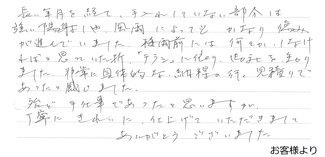 長い年月を経て、手入れしていない部分は
強い陽ざしや風雨によって かなり 傷み
が進んでいました。梅雨前には 何とかしなけ
ればと思っていた所、チラシに
ました。非常に具体的な 説明 見積りで
あったと感じました。
強い 手仕事であったと思いますが、
丁寧に きれいに、仕上げて いただきまして
ありがとう ございました
お客様より